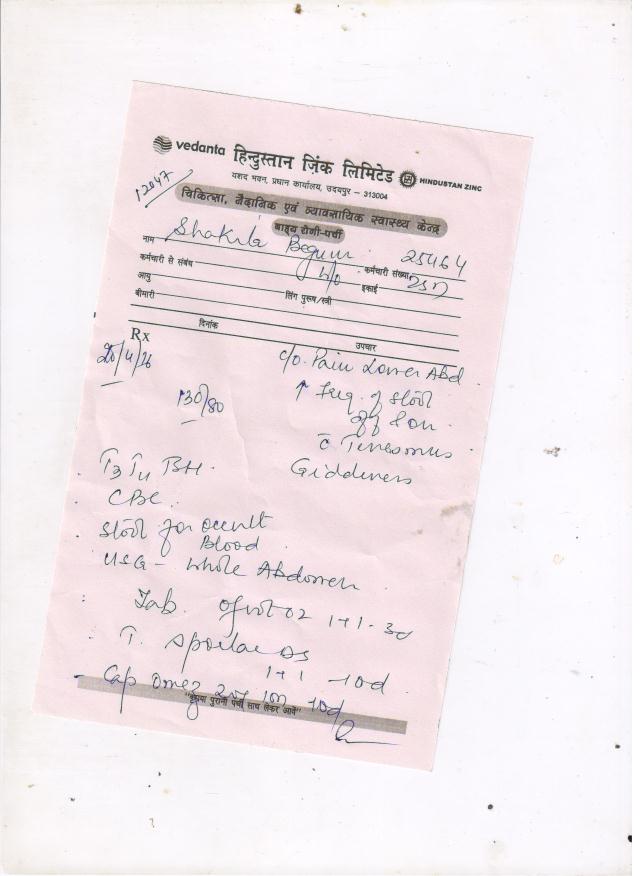 vedanta हिन्दुस्तान ज़िंक लिमिटेड HINDUSTAN ZINC
यशद भवन, प्रधान कार्यालय, उदयपुर – 313004
12047
चिकित्सा, नैदानिक एवं व्यावसायिक स्वास्थ्य केन्द्र
बाह्य रोगी-पर्ची
नाम Shakila Begum कर्मचारी संख्या 25464
कर्मचारी से संबंध इकाई
आयु लिंग पुरूष/स्त्री
बीमारी
दिनांक उपचार
Rx
20/4/16 c/o. Pain Lower Abd.
130/80 ↑ Freq. of stool
off & on.
c̄ Tenesmus
T3 T4 BH. Giddiness
CBC.
Stool for occult
Blood
USG – Whole Abdomen
Tab. 1+1 - 3d
T. DS
1+1 - 10d
Cap Omez 10d
"कृपया पुरानी पर्ची साथ लेकर आवें"